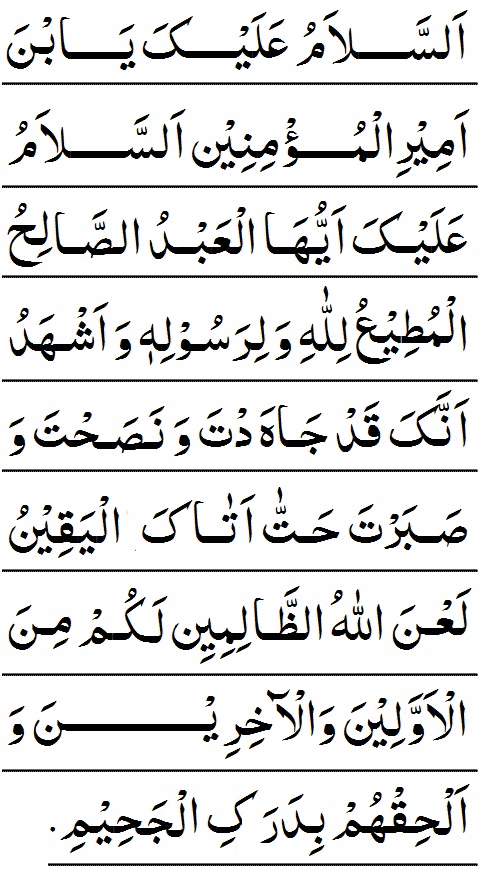 اَلسَّلاَمُ عَلَیْکَ یَابْنَ
اَمِیْرِ الْمُؤْمِنِیْن اَلسَّلاَمُ
عَلَیْکَ اَیُّهَا الْعَبْدُ الصَّالِحُ
الْمُطِیْعُ لِلّٰهِ وَ لِرَسُوْلِهٖ وَ اَشْهَدُ
اَنَّکَ قَدْ جَاهَدْتَ وَ نَصَحْتَ وَ
صَبَرْتَ حَتّٰی اَتٰاکَ الْیَقِیْنُ
لَعْنَ اللهُ الظَّالِمِیِن لَکُمْ مِنَ
الْاَوَّلِیْنَ وَالْآخِرِیْنَ وَ
اَلْحِقْهُمْ بِدَرَکِ الْجَحِیْمِ.